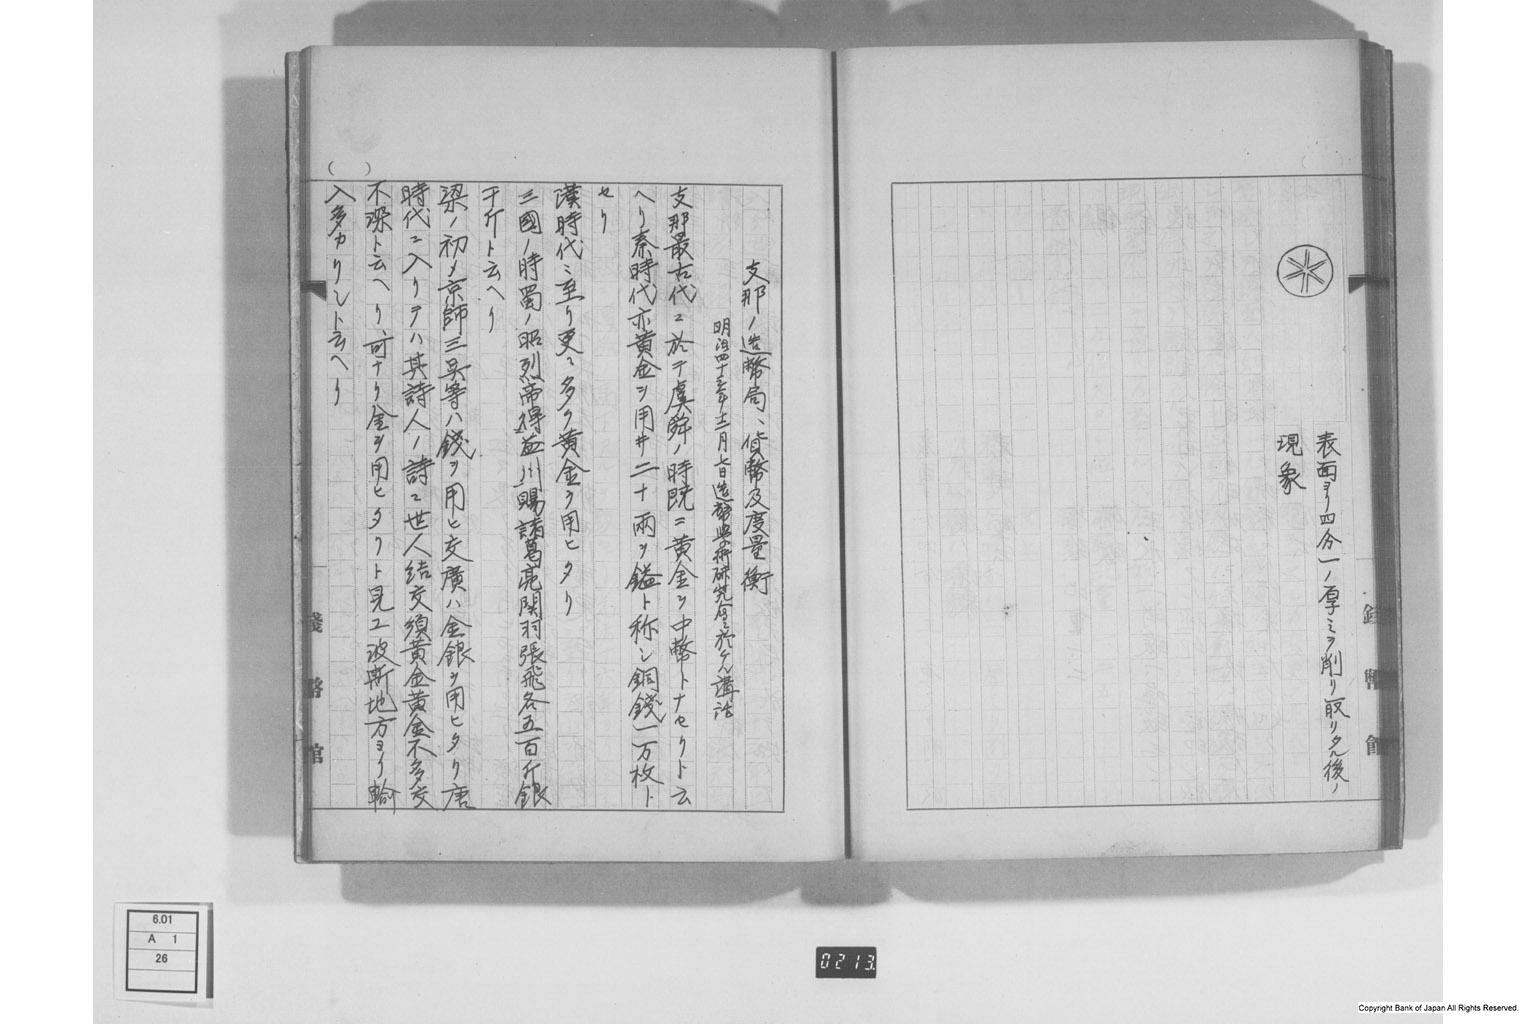 表面ヨリ四分一ノ厚ミヲ削リ取リタル後ノ
現象
錢幣館
支那ノ造幣局、貨幣及度量衡
明治四十三年十二月七日造幣學術研究會ニ於ケル講話
支那最古代ニ於テ虞舜ノ時既ニ黄金ヲ中幣トナセリト云
ヘリ秦時代亦黄金ヲ用ヰ二十兩ヲ鎰ト称シ銅錢一万枚ト
セリ
漢時代ニ至リ更ニ多ク黄金ヲ用ヒタリ
三國ノ時蜀ノ昭烈帝得益川賜諸葛亮関羽張飛各五百斤銀
千斤ト云ヘリ
梁ノ初メ京師三呉等ハ錢ヲ用ヒ交廣ハ金銀ヲ用ヒタリ唐
時代ニ入リテハ其詩人ノ詩ニ世人結交須黄金黄金不多交
不深ト云ヘリ、可ナリ金ヲ用ヒタリト見エ波斯地方ヨリ輸
入多カリシト云ヘリ
(  )
錢幣館
6.01
A 1
26
0213
Copyright Bank of Japan All Rights Reserved.